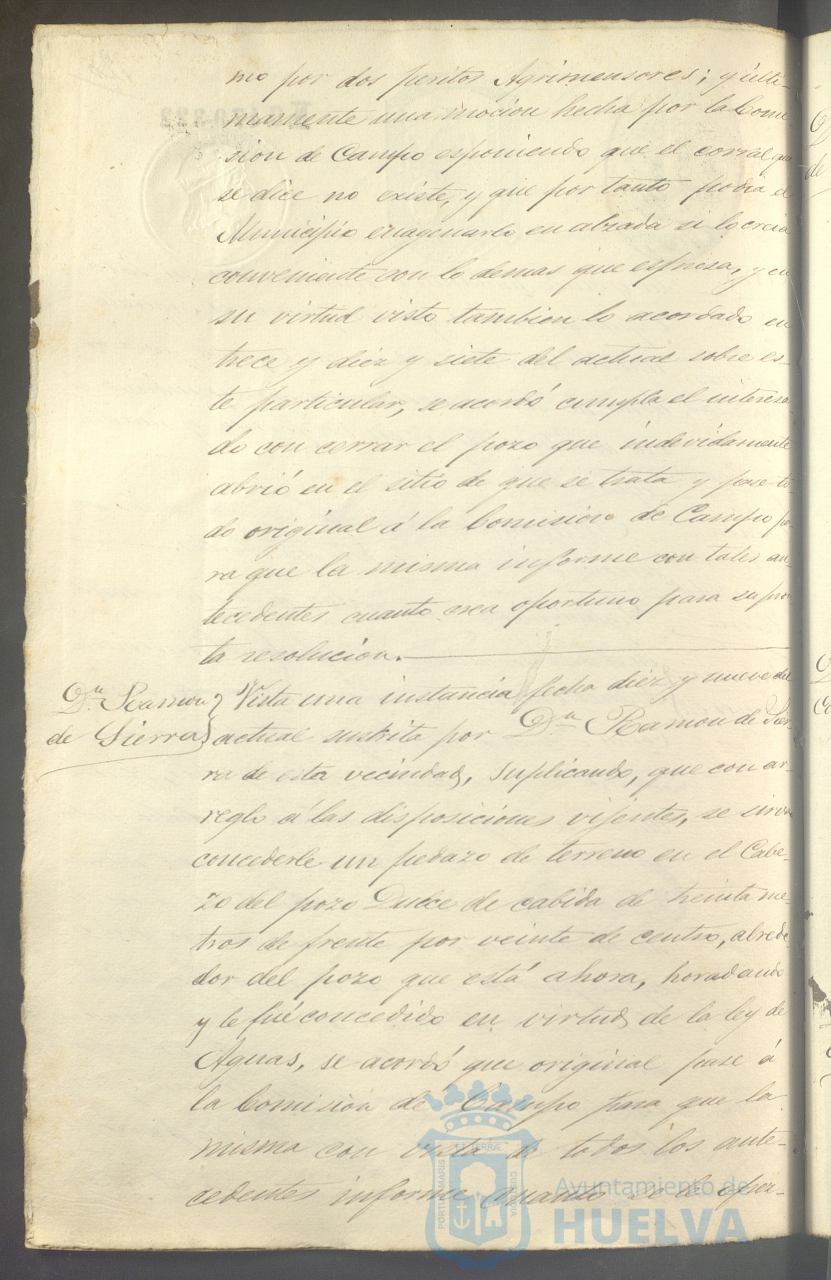 mo por dos peritos Agrimensores; y ulti-
mamente una mocion hecha por la Comi-
sion de Campo esponiendo que el corral que
se dice no existe, y que por tanto podia el
Municipio enagenarlo en alzada si lo creia
conveniente con lo demas que espresa, y en
su virtud visto tambien lo acordado en
trece y diez y siete del actual sobre es-
te particular, se acordó cumpla el interesa-
do con cerrar el pozo que indevidamente
abrió en el sitio de que se trata y pase to-
do original á la Comision de Campo pa-
ra que la misma informe con tales an-
tecedentes cuanto crea oportuno para su pron-
ta resolucion.
Dn. Ramon
de Sierra
Vista una instancia fecha diez y nueve del
actual suscrita por Dn Ramon de Sier-
ra de esta vecindad, suplicando, que con ar-
reglo á las disposiciones vijentes, se sirva
concederle un pedazo de terreno en el Cabe-
zo del pozo Dulce de cabida de treinta me-
tros de frente por veinte de centro, alrede-
dor del pozo que está ahora, horadando
y le fué concedido en virtud de la ley de
Aguas, se acordó que original pase á
la Comision de Campo para que la
misma con vista de todos los ante-
cedentes informe cuanto se le
PORTUS MARIS
ET TERRAE
CUSTODIA
Ayuntamiento de
HUELVA